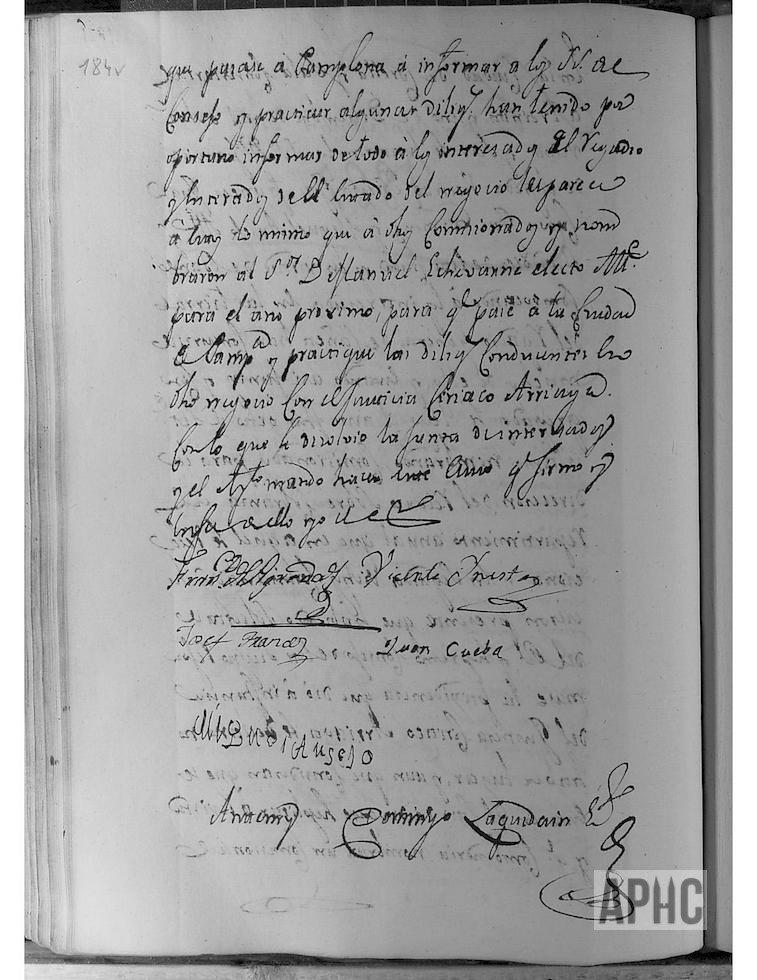 184v
que pasase a Pamplona à informar a los SS. de
Consejo y practicar algunas dilig.s han tenido por
oportuno informar de todo à los interesados el Regadio
y enterados del estado del negocio les parece
à hay lo mismo que à dhos Comisionados y nom
braron al S.or D. Manuel Echeverrie electo Alc.e
para el año proximo, para q.e pase à la Ciudad
de Pamp.a y practique las dilig.s Conducentes en
dho negocio con el Justicia Ciriaco Arriaga.
Con lo que se disolvio la Junta de interesados
y el Ayto mando hacer este Auto q.e firmo y
en fee de ello yo el
Vicente Ynestoa
Josef
Juan Cueba
Miguel Ausejo
Ante mi Domingo Laquidain
APHC